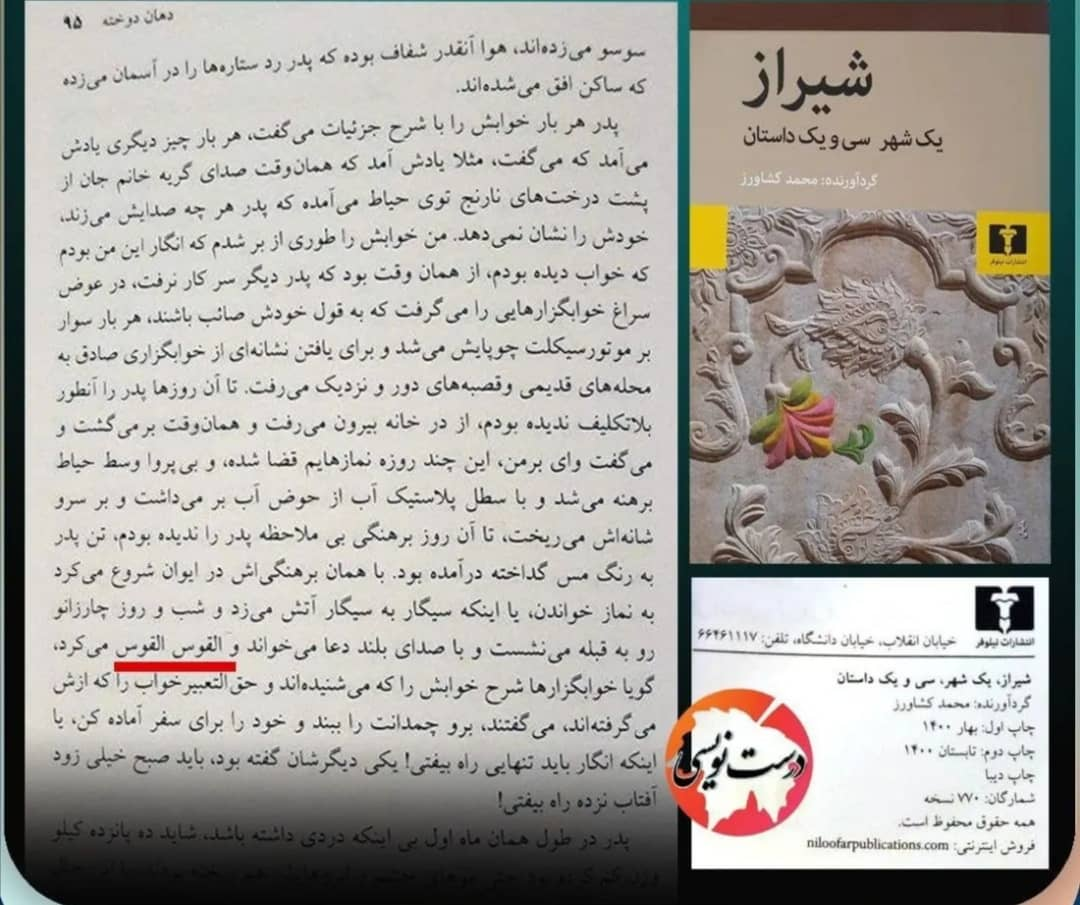 دهان دوخته ۹۵
سوسو می‌زده‌اند، هوا آنقدر شفاف بوده که پدر رد ستاره‌ها را در آسمان می‌زده
که ساکن افق می‌شده‌اند.
پدر هر بار خوابش را با شرح جزئیات می‌گفت، هر بار چیز دیگری یادش
می‌آمد که می‌گفت، مثلا یادش آمد که همان‌وقت صدای گریه خانم جان از
پشت درخت‌های نارنج توی حیاط می‌آمده که پدر هر چه صدایش می‌زند،
خودش را نشان نمی‌دهد. من خوابش را طوری از بر شدم که انگار این من بودم
که خواب دیده بودم، از همان وقت بود که پدر دیگر سر کار نرفت، در عوض
سراغ خوابگزارهایی را می‌گرفت که به قول خودش صائب باشند، هر بار سوار
بر موتورسیکلت چوپایش می‌شد و برای یافتن نشانه‌ای از خوابگزاری صادق به
محله‌های قدیمی وقصبه‌های دور و نزدیک می‌رفت. تا آن روزها پدر را آنطور
بلاتکلیف ندیده بودم، از در خانه بیرون می‌رفت و همان‌وقت برمی‌گشت و
می‌گفت وای برمن، این چند روزه نمازهایم قضا شده، و بی‌پروا وسط حیاط
برهنه می‌شد و با سطل پلاستیک آب از حوض آب بر می‌داشت و بر سرو
شانه‌اش می‌ریخت، تا آن روز برهنگی بی ملاحظه پدر را ندیده بودم، تن پدر
به رنگ مس گداخته درآمده بود. با همان برهنگی‌اش در ایوان شروع می‌کرد
به نماز خواندن، یا اینکه سیگار به سیگار آتش می‌زد و شب و روز چارزانو
رو به قبله می‌نشست و با صدای بلند دعا می‌خواند و القوس القوس می‌کرد،
گویا خوابگزارها شرح خوابش را که می‌شنیده‌اند و حق‌التعبیرخواب را که ازش
می‌گرفته‌اند، می‌گفتند، برو چمدانت را ببند و خود را برای سفر آماده کن، یا
اینکه انگار باید تنهایی راه بیفتی! یکی دیگرشان گفته بود، باید صبح خیلی زود
آفتاب نزده راه بیفتی!
پدر در طول همان ماه اول بی اینکه دردی داشته باشد، شاید ده پانزده کیلو
شیراز
یک شهر سی و یک داستان
گردآورنده: محمد کشاورز
انتشارات نیلوفر
انتشارات نیلوفر
خیابان انقلاب، خیابان دانشگاه، تلفن: ۶۶۴۶۱۱۱۷
شیراز، یک شهر، سی و یک داستان
گردآورنده: محمد کشاورز
چاپ اول: بهار ۱۴۰۰
چاپ دوم: تابستان ۱۴۰۰
چاپ دیبا
شمارگان: ۷۷۰ نسخه
همه حقوق محفوظ است.
فروش اینترنتی: niloofarpublications.com
درست نویسی